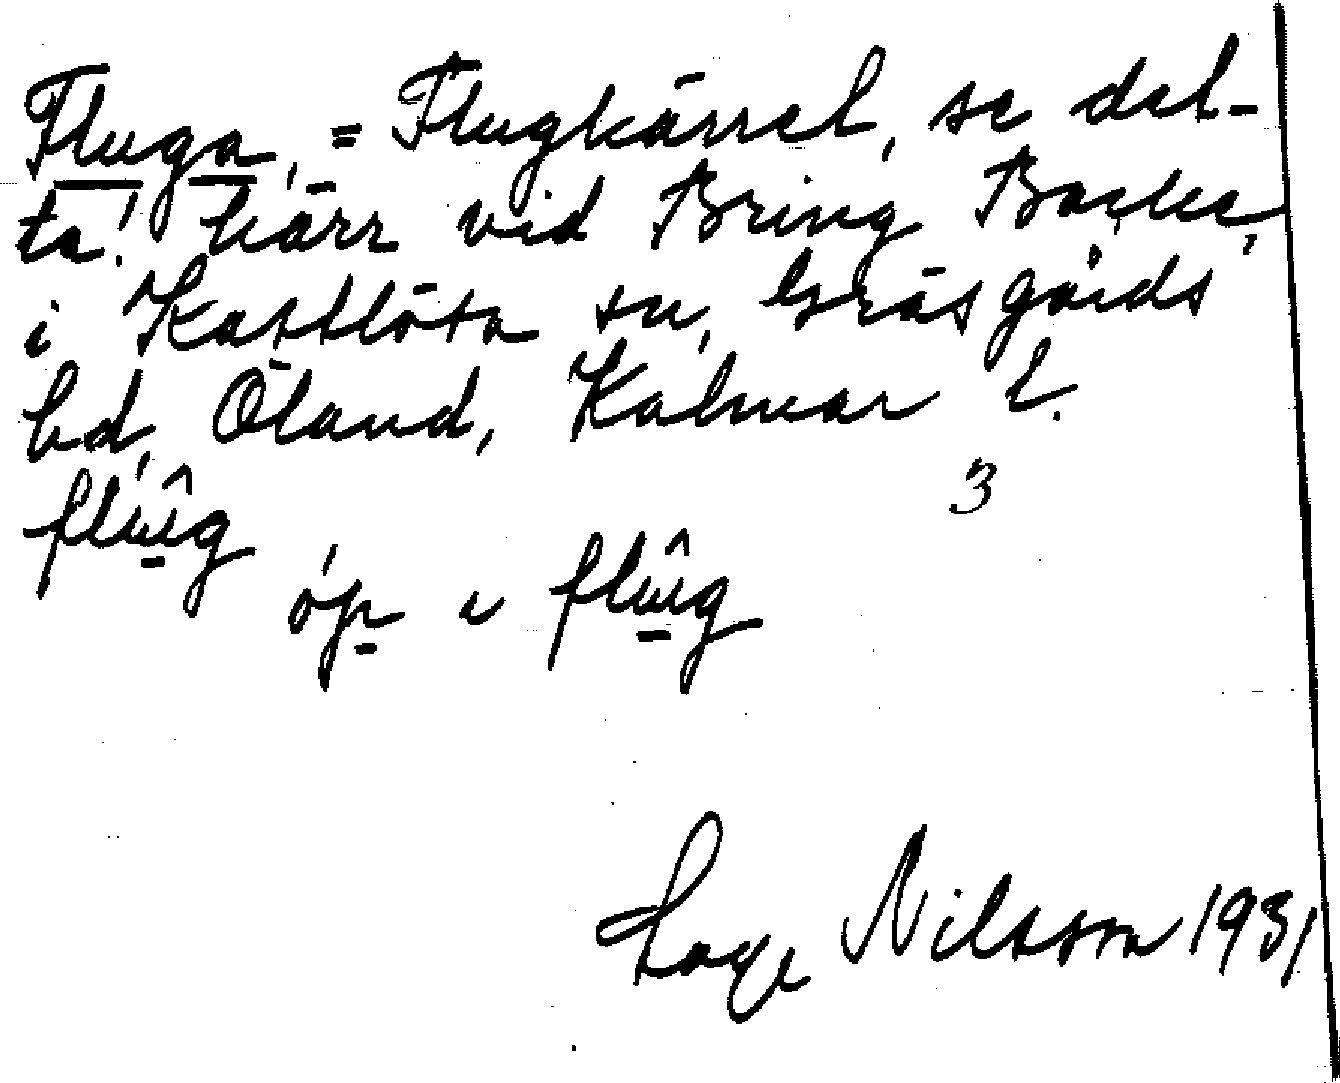 Fluga, = Flugkärret, se det-
ta! kärr vid Bring Backe,
i Kastlösa sn, Gräsgårds
hd, Öland, Kalmar l.
3
flûg
óp i flûg
Nilsson 1931